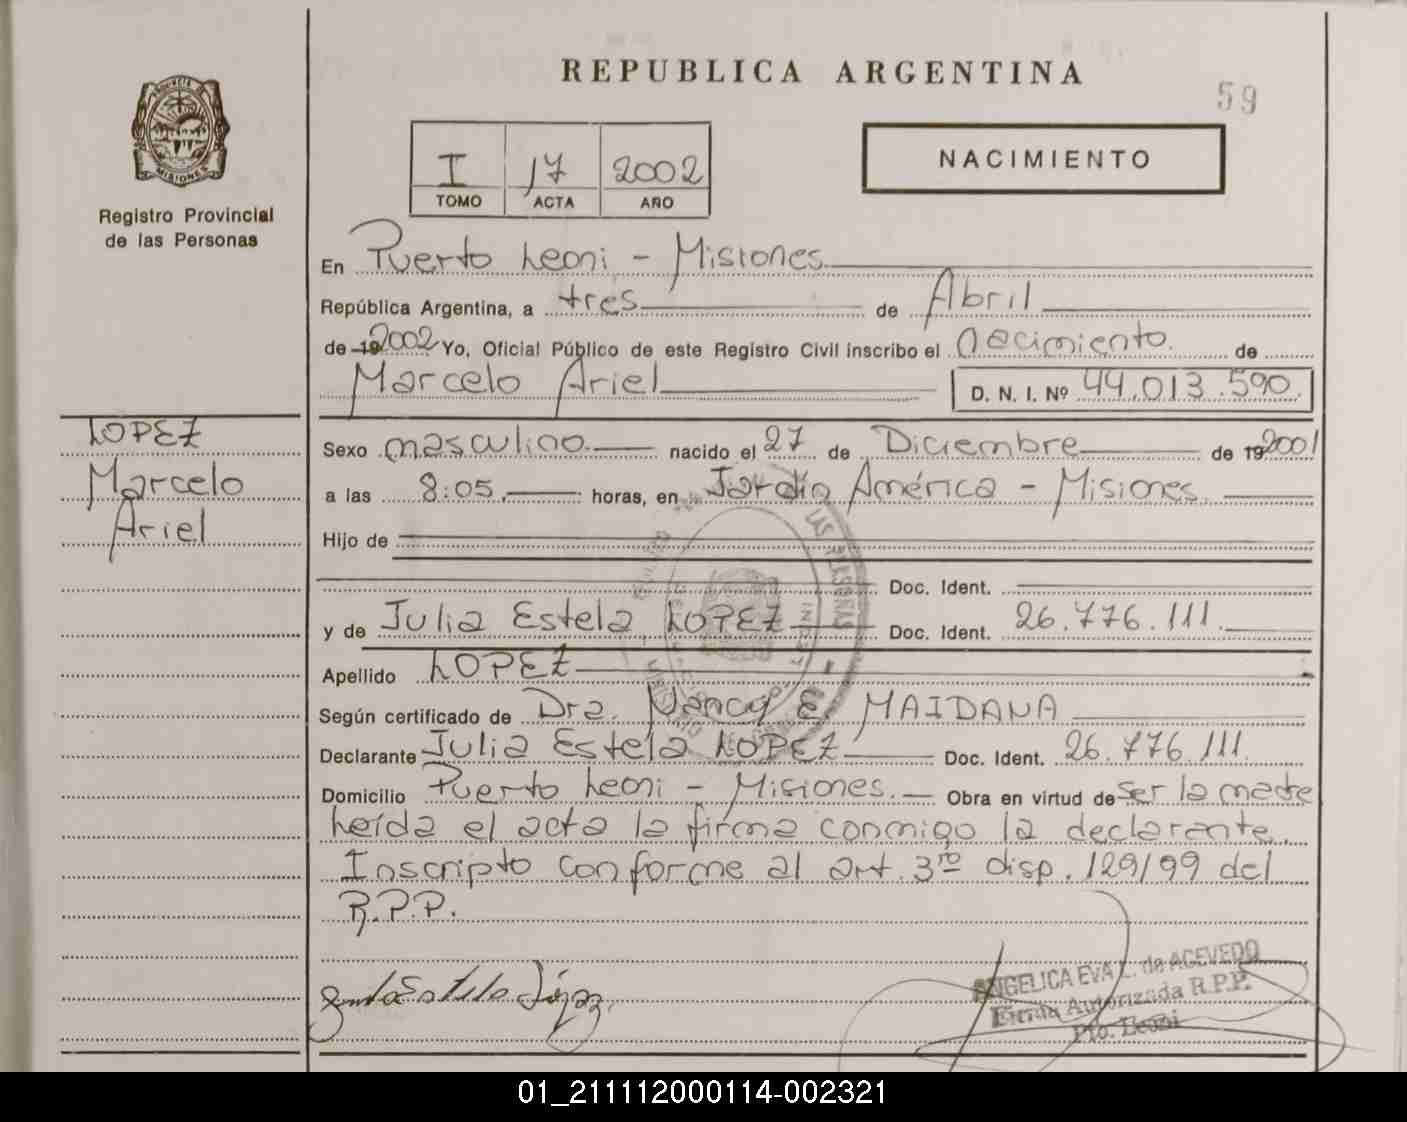 REPUBLICA ARGENTINA
59
PROVINCIA DE
MISIONES
Registro Provincial
de las Personas
I 17 2002
TOMO ACTA AÑO
NACIMIENTO
En Puerto Leoni - Misiones
República Argentina, a tres de Abril
de 19 2002 Yo, Oficial Público de este Registro Civil inscribo el nacimiento. de
Marcelo Ariel D. N. I. Nº 44.013.590.
LOPEZ
Marcelo
Ariel
Sexo masculino. nacido el 27 de Diciembre de 19 2001
a las 8:05. horas, en Jardín América - Misiones.
Hijo de
Doc. Ident.
y de Julia Estela LOPEZ Doc. Ident. 26.776.111.
Apellido LOPEZ
Según certificado de Dra. Nancy E MAIDANA
Declarante Julia Estela LOPEZ Doc. Ident. 26.776.111.
Domicilio Puerto Leoni - Misiones. Obra en virtud de ser la madre
Leída el acta la firma conmigo la declarante.
Inscripto conforme al art. 3ro disp. 129/99 del
R.P.P.
LAS PERSONAS
ANGELICA EVA L. de ACEVEDO
Firma Autorizada R.P.P.
Pto. Leoni
01_211112000114-002321